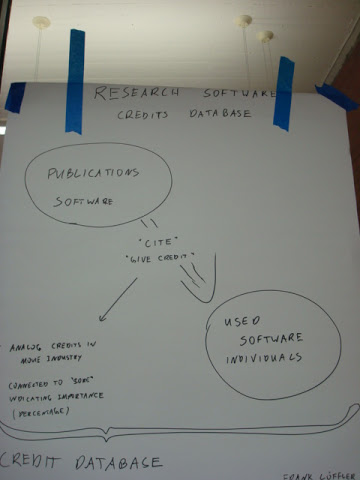 RESEARCH SOFTWARE
CREDITS DATABASE
PUBLICATIONS
SOFTWARE
"CITE"
"GIVE CREDIT"
USED
SOFTWARE
INDIVIDUALS
ANALOG CREDITS IN
MOVIE INDUSTRY
CONNECTED TO
INDICATING IMPORTANCE
(PERCENTAGE)
CREDIT DATABASE
FRANK LÖFFLER